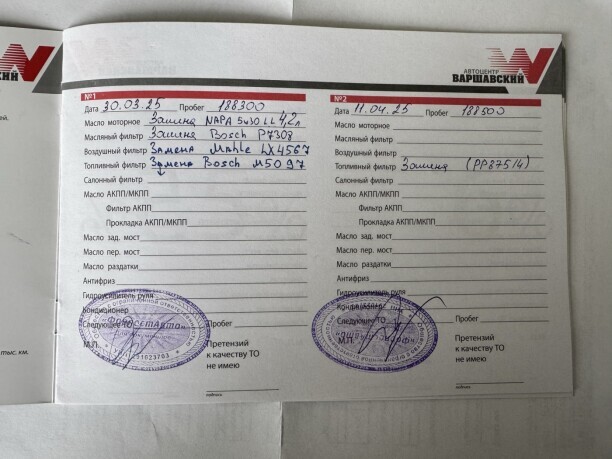 ский
АВТОЦЕНТР
ВАРШАВСКИЙ
ей.
тыс. км.
№1
Дата 30.03.25 Пробег 188300
Масло моторное Замена NAPA 5w30 LL 4,2л
Масляный фильтр Замена Bosch P7308
Воздушный фильтр Замена Mahle LX4567
Топливный фильтр Замена Bosch M5097
Салонный фильтр
Масло АКПП/МКПП
Фильтр АКПП
Прокладка АКПП/МКПП
Масло зад. мост
Масло пер. мост
Масло раздатки
Антифриз
Гидроусилитель руля
Кондиционер
Следующее Пробег
М.П. Претензий
к качеству ТО
не имею
№2
Дата 11.04.25 Пробег 188500
Масло моторное
Масляный фильтр
Воздушный фильтр
Топливный фильтр Замена (PP875/4)
Салонный фильтр
Масло АКПП/МКПП
Фильтр АКПП
Прокладка АКПП/МКПП
Масло зад. мост
Масло пер. мост
Масло раздатки
Антифриз
Гидроусилитель руля
Следующее Пробег
М.П. Претензий
к качеству ТО
не имею